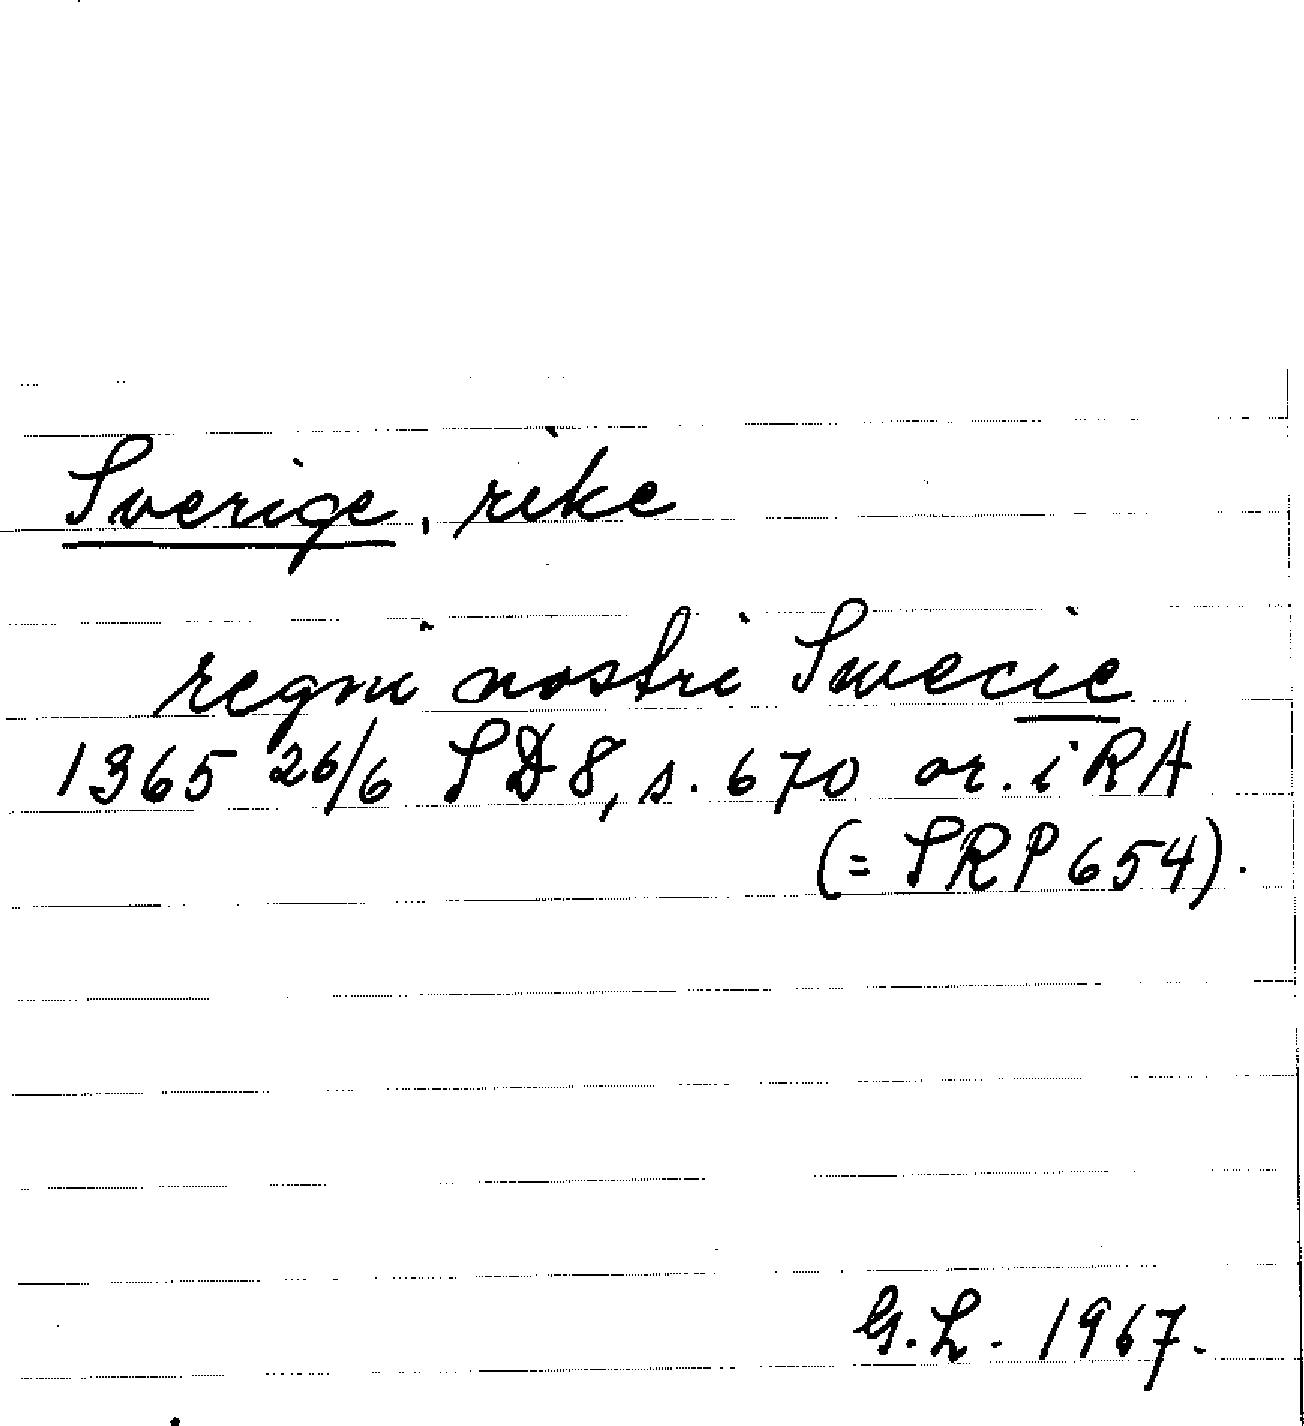 Sverige, rike
regni nostri Swecie
1365 26/6 SD 8, s. 670 or. i RA
(= SRP 654).
G.L. 1967.